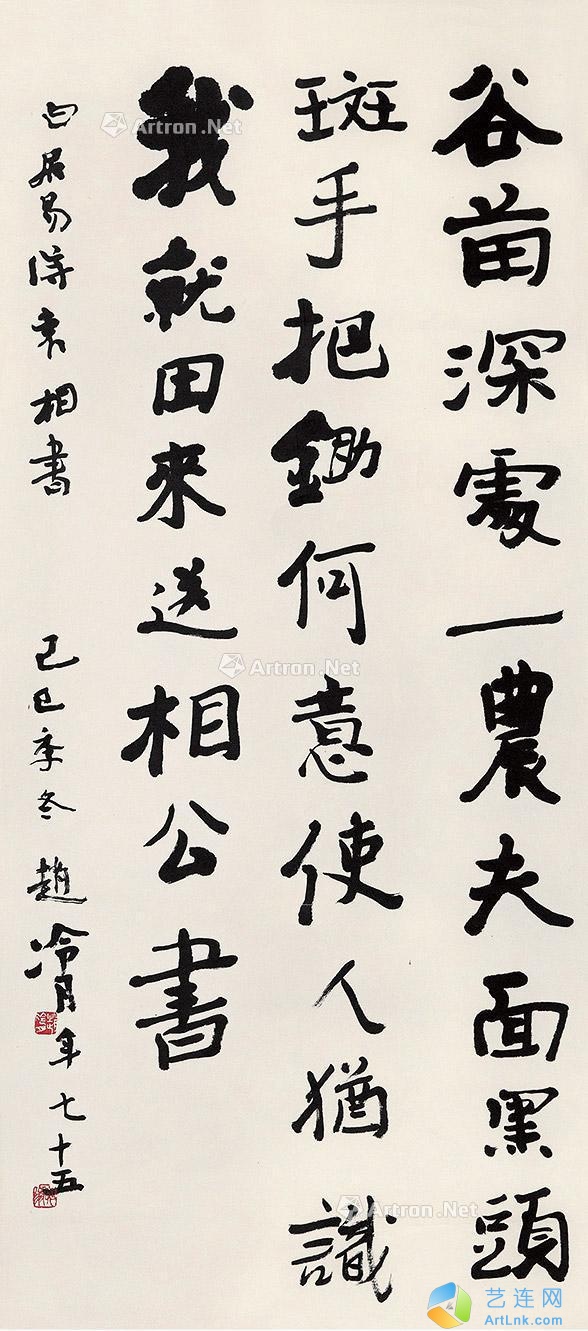 谷苗深處一農夫面黑頭
斑手把鋤何意使人猶識
我就田來送相公書
白居易得袁相書
己巳季冬趙冷月年七十五
Artron.Net
Artron.Net
Artron.Net
艺连网
ArtLnk.com